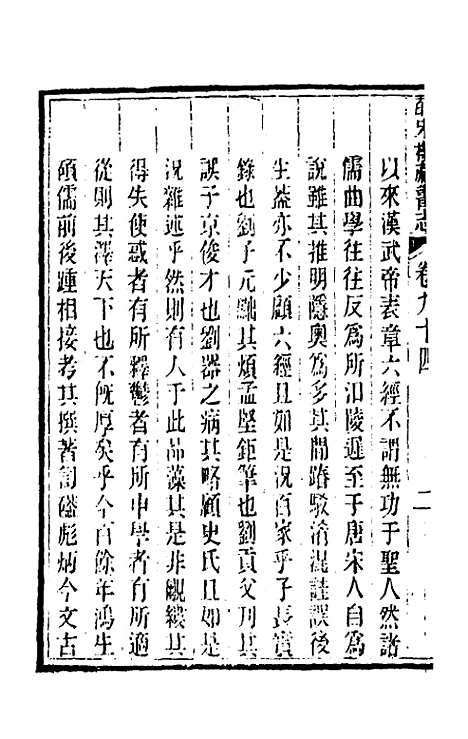 皕宋樓藏書志 卷九十四 二
以來漢武帝表章六經不謂無功于聖人然諸
儒曲學往往反爲所汩陵遲至于唐宋人自爲
說雖其推明隱奧爲多其間踳駁淆混詿誤後
生葢亦不少顧六經且如是況百家乎子長實
錄也劉子元黜其煩孟堅鉅筆也劉貢父刋其
誤子京俊才也劉器之病其略顧史氏且如是
況雜述乎然則有人于此品藻其是非覼縷其
得失使惑者有所釋鬱者有所申學者有所適
從則其澤天下也不旣厚矣乎今百餘年鴻生
碩儒前後踵相接考其撰著訇磕彪炳今文古